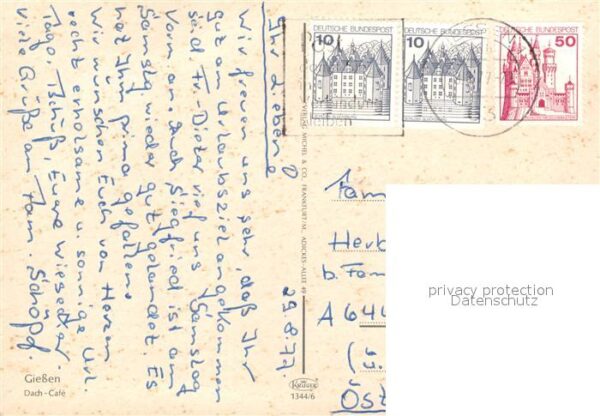 Ihr Lieben!
Wir freuen uns sehr, daß Ihr
gut am Urlaubsziel angekommen
seid. F.-Dieter rief uns Samstag
vorm. an. Auch Siegfried ist am
Samstg wieder gut gelandet. Es
hat Ihm prima gefallen.
Wir wünschen Euch von Herzen
recht erholsame u. sonnige Url.
Tage. Tschüß, Eure Wiesecker.
Viele Grüße an Fam. Schöpf.
29.8.77
Gießen
Dach-Café
VERLAG MICHEL & CO., FRANKFURT/M., ADICKES-ALLEE
KRÜGER
1344/6
10 DEUTSCHE BUNDESPOST
10 DEUTSCHE BUNDESPOST
DEUTSCHE BUNDESPOST 50
bleiben
Fam
Herb
b. Fam
A 644
Öst
privacy protection
Datenschutz